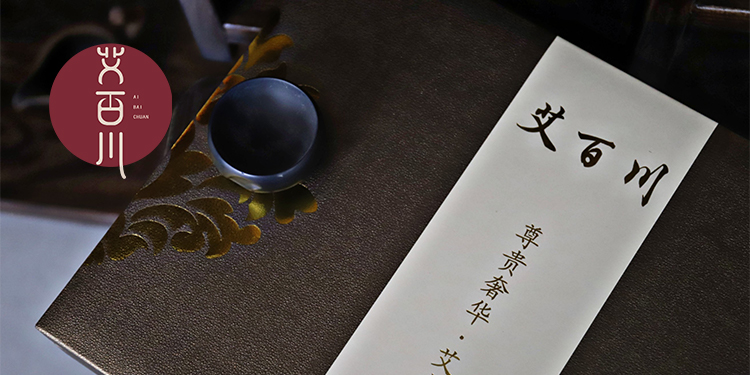 艾百川
AI
BAI
CHUAN
艾百川
尊贵奢华·艾